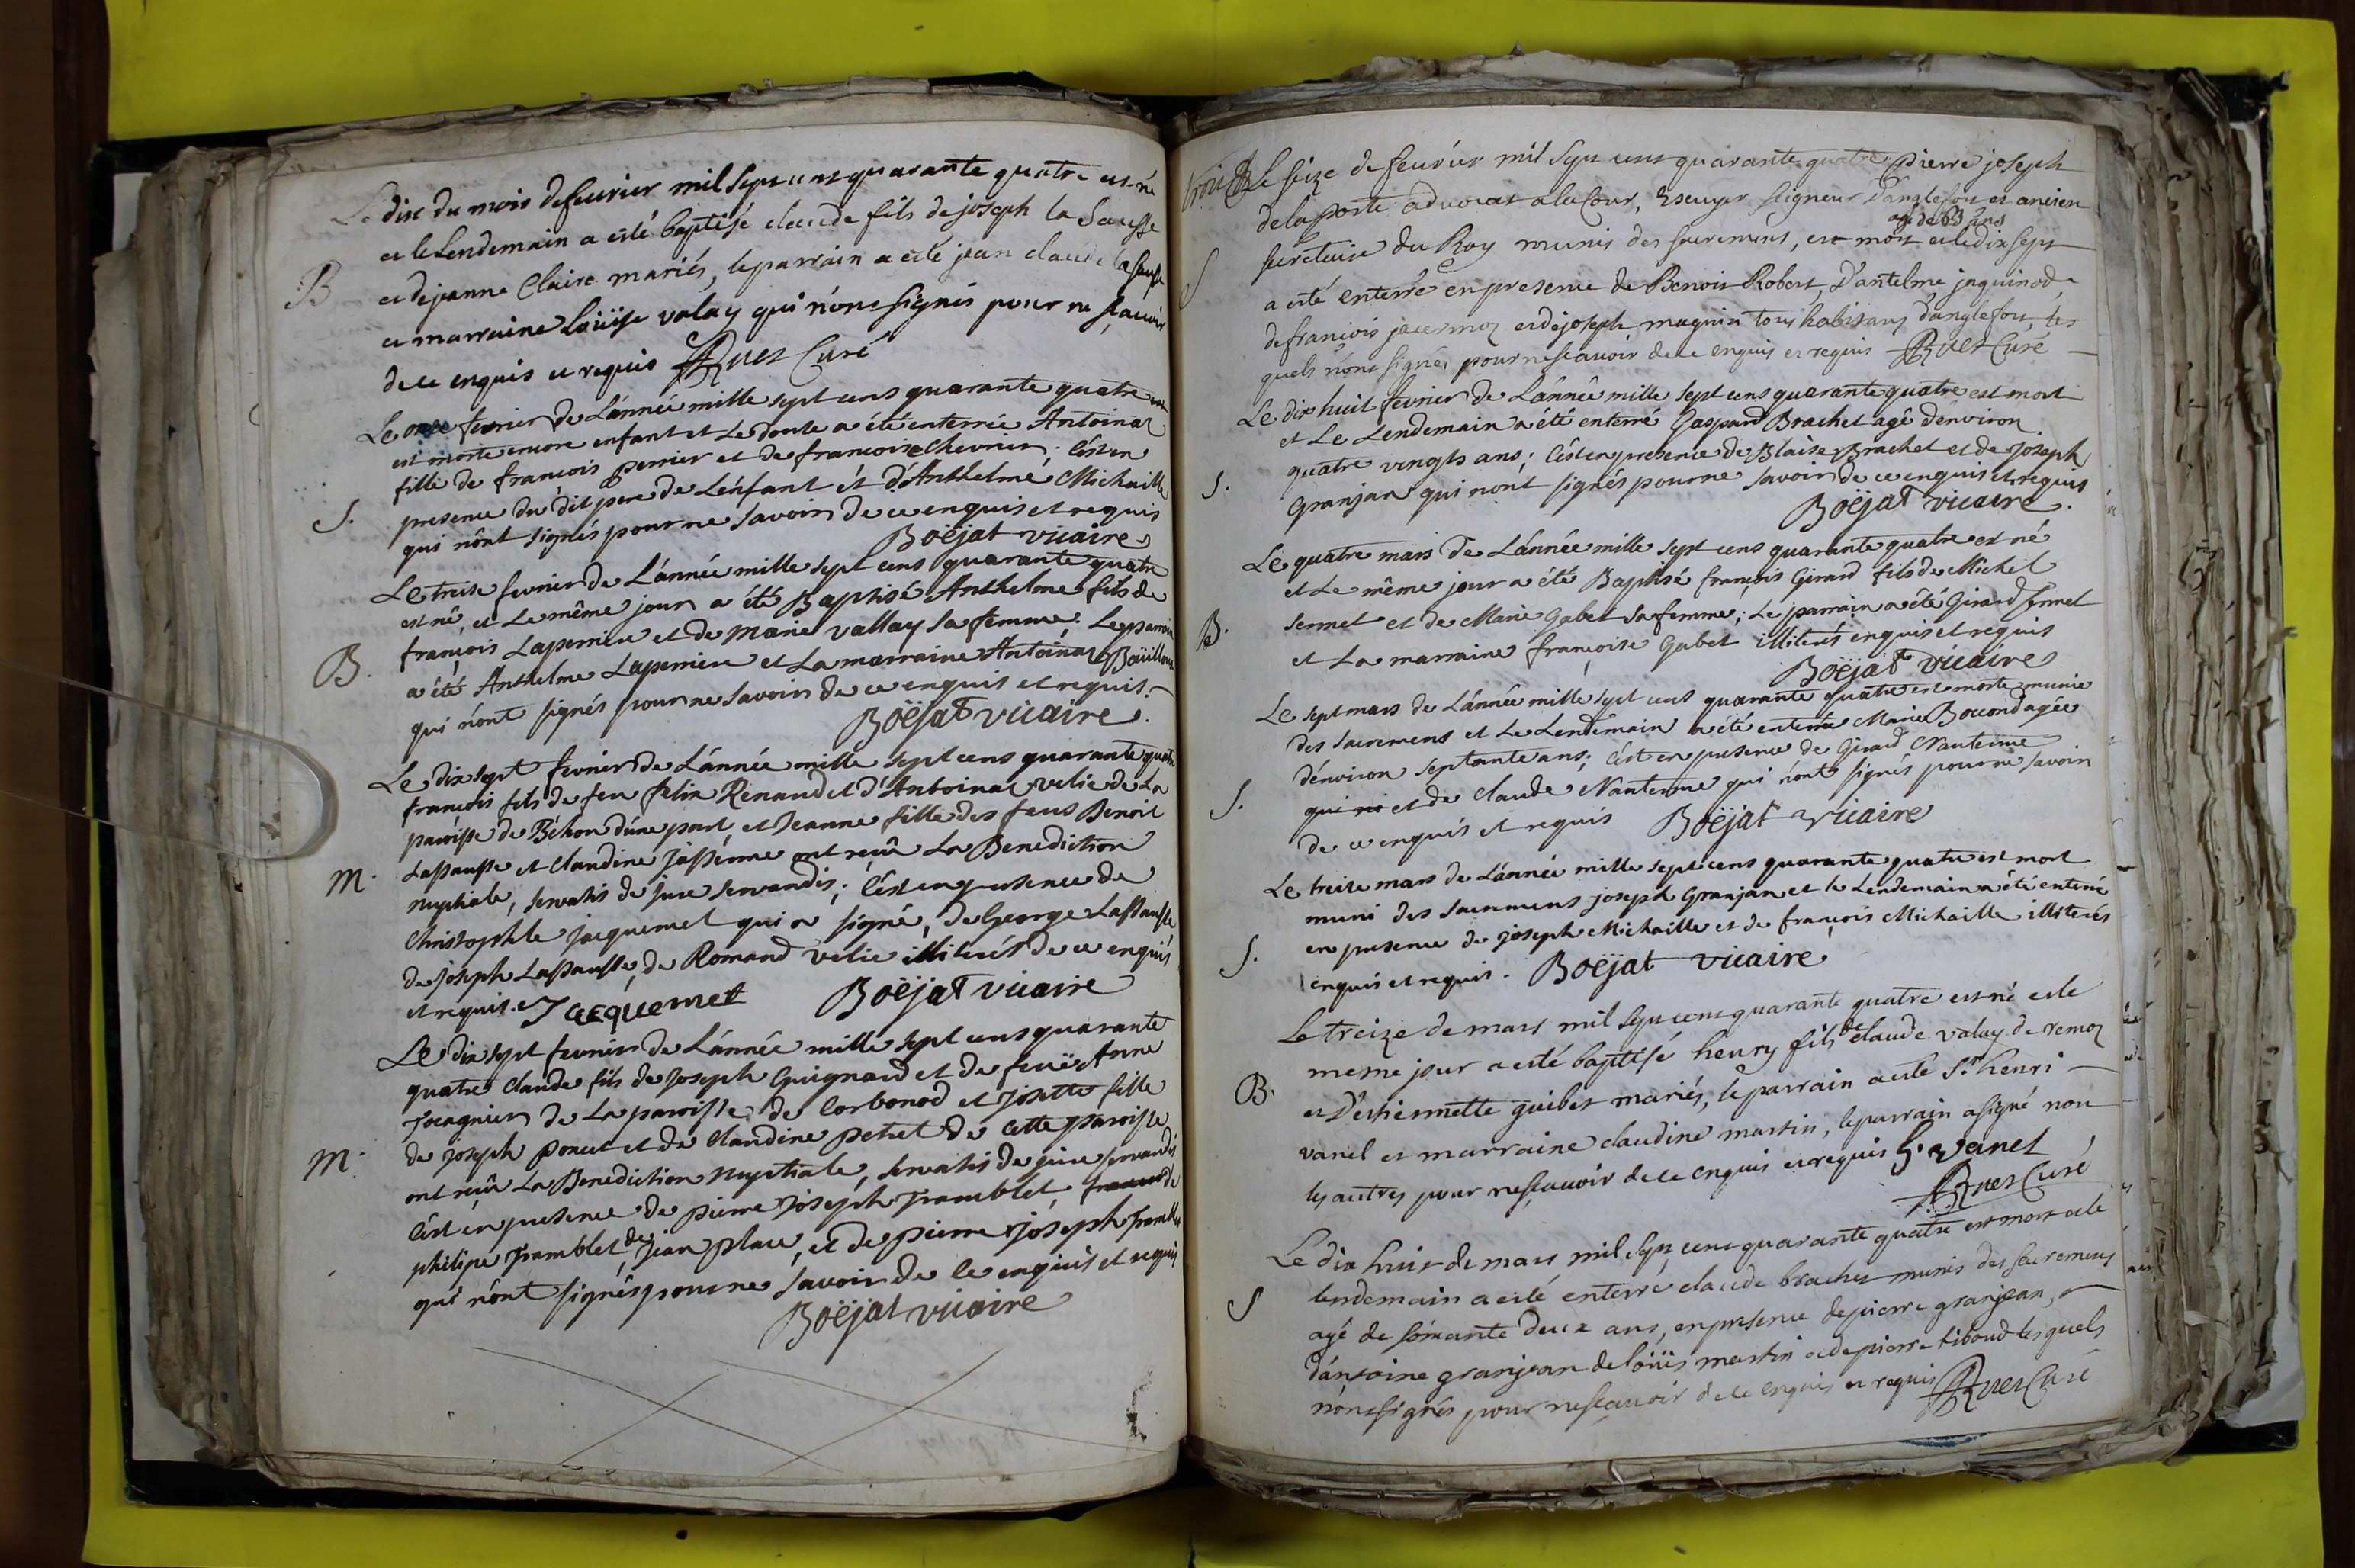 Le dix du mois de feuvrier mil sept cent quarante quatre est né
et le Lendemain a esté baptisé claude fils de joseph la Sausse
B et de jeanne Claire mariés, le parrain a esté jean claude la Sausse
et marraine Loüise valay qui n'ont signés pour ne sçavoir
de ce enquis et requis Rues Curé
Le onze fevrier de L'année mille sept cens quarante quatre
est morte encore enfant et Le douze a été enterrée Antoinaz
fille de francois perrier et de francoise Chevrier; C'est en
S. presence du dit pere de L'enfant et d'Anthelme Michaille
qui n'ont signés pour ne savoir de ce enquis et requis
Boëjat vicaire
Le treise fevrier de L'année mille sept cens quarante quatre
est né, et Le même jour a été Baptisé Anthelme fils de
françois Laperriere et de Marie vallay sa femme; Le parrain
B. a été Anthelme Laperriere et La marraine Antoinaz Boüillon
qui n'ont signés pour ne savoir de ce enquis et requis.
Boëjat vicaire.
Le dix sept fevrier de L'année mille sept cens quarante quatre
françois fils de feu felix Renaud et d'Antoinaz velie de La
paroisse de Béhon d'une part, et Jeanne fille des feus Benoit
M. Lassausse et Claudine Jassenne ont reçû La Benediction
nuptiale, servatis de jure servandis; C'est en presence de
Christophle jacquemet qui a signé, de George Lassausse
de joseph Lassausse, de Romand velie illiterés de ce enquis
et requis. Jacquemet Boëjat vicaire
Le dix sept fevrier de L'année mille sept cens quarante
quatre Claude fils de Joseph Guignard et de feuë Anne
de La paroisse de Corbonod et Josette fille
de Joseph poncet et de Claudine petret de cette paroisse
M. ont reçû La Benediction nuptiale, servatis de jure servandis
C'est en presence de pierre Joseph Tramblet de
philipe Tramblet, de Jean place, et de pierre joseph Tramblet
qui n'ont signés pour ne savoir de ce enquis et requis
Boëjat vicaire
Le seize de feuvrier mil sept cent quarante quatre pierre joseph
de la poste advocat a la Cour, Escuyer seigneur D'anglefort et ancien
agé de 63 ans
S secretaire du Roy munis des sacremens, est mort et le dix sept
a esté enterré en presence de Benoit Robert, D'antelme jaquinod,
de francois jacermoz et de joseph magnin tous habitans d'anglefort, les
quels n'ont signés pour ne scavoir de ce enquis et requis Rues Curé
Le dix huit fevrier de L'année mille sept cens quarante quatre est mort
et Le Lendemain a été enterré Gaspard Brachet agé d'environ
quatre vingts ans; C'est en presence de Blaise Brachet et de Joseph
S. Granjan qui n'ont signés pour ne savoir de ce enquis et requis
Boëjat vicaire.
Le quatre mars de L'année mille sept cens quarante quatre est né
et Le même jour a été Baptisé françois Girard fils de Michel
B. Semet et de Marie Gabet sa femme; Le parrain a été Girard Semet
et La marraine françoise Gabet illiterés enquis et requis
Boëjat vicaire
Le sept mars de L'année mille sept cens quarante quatre est morte munie
des sacremens et Le Lendemain a été enterrée Marie Bocond agée
d'environ septante ans; C'est en presence de Girard Nanterme
S. et de Claude Nanterme qui n'ont signés pour ne savoir
de ce enquis et requis Boëjat vicaire
Le treise mars de L'année mille sept cens quarante quatre est mort
muni des sacremens joseph Granjan et le Lendemain a été enterré
S. en presence de joseph Michaille et de françois Michaille illiterés
enquis et requis. Boëjat vicaire
Le treize de mars mil sept cent quarante quatre est né et le
meme jour a esté baptisé henry fils de claude valay de remoz
B. et D'estiennette guibet mariés, le parrain a esté Sr. henri
vanel et marraine claudine martin, le parrain a signé non
les autres pour ne sçauoir de ce enquis et requis h. vanel
Rues Curé
Le dix huit de mars mil sept cent quarante quatre est mort et le
lendemain a esté enterré claude brachet munis des sacremens
S agé de soixante deux ans, en presence de pierre granjean,
d'antoine granjean de loüis martin et de pierre tiboud lesquels
n'ont signés pour ne scauoir de ce enquis et requis Rues Curé